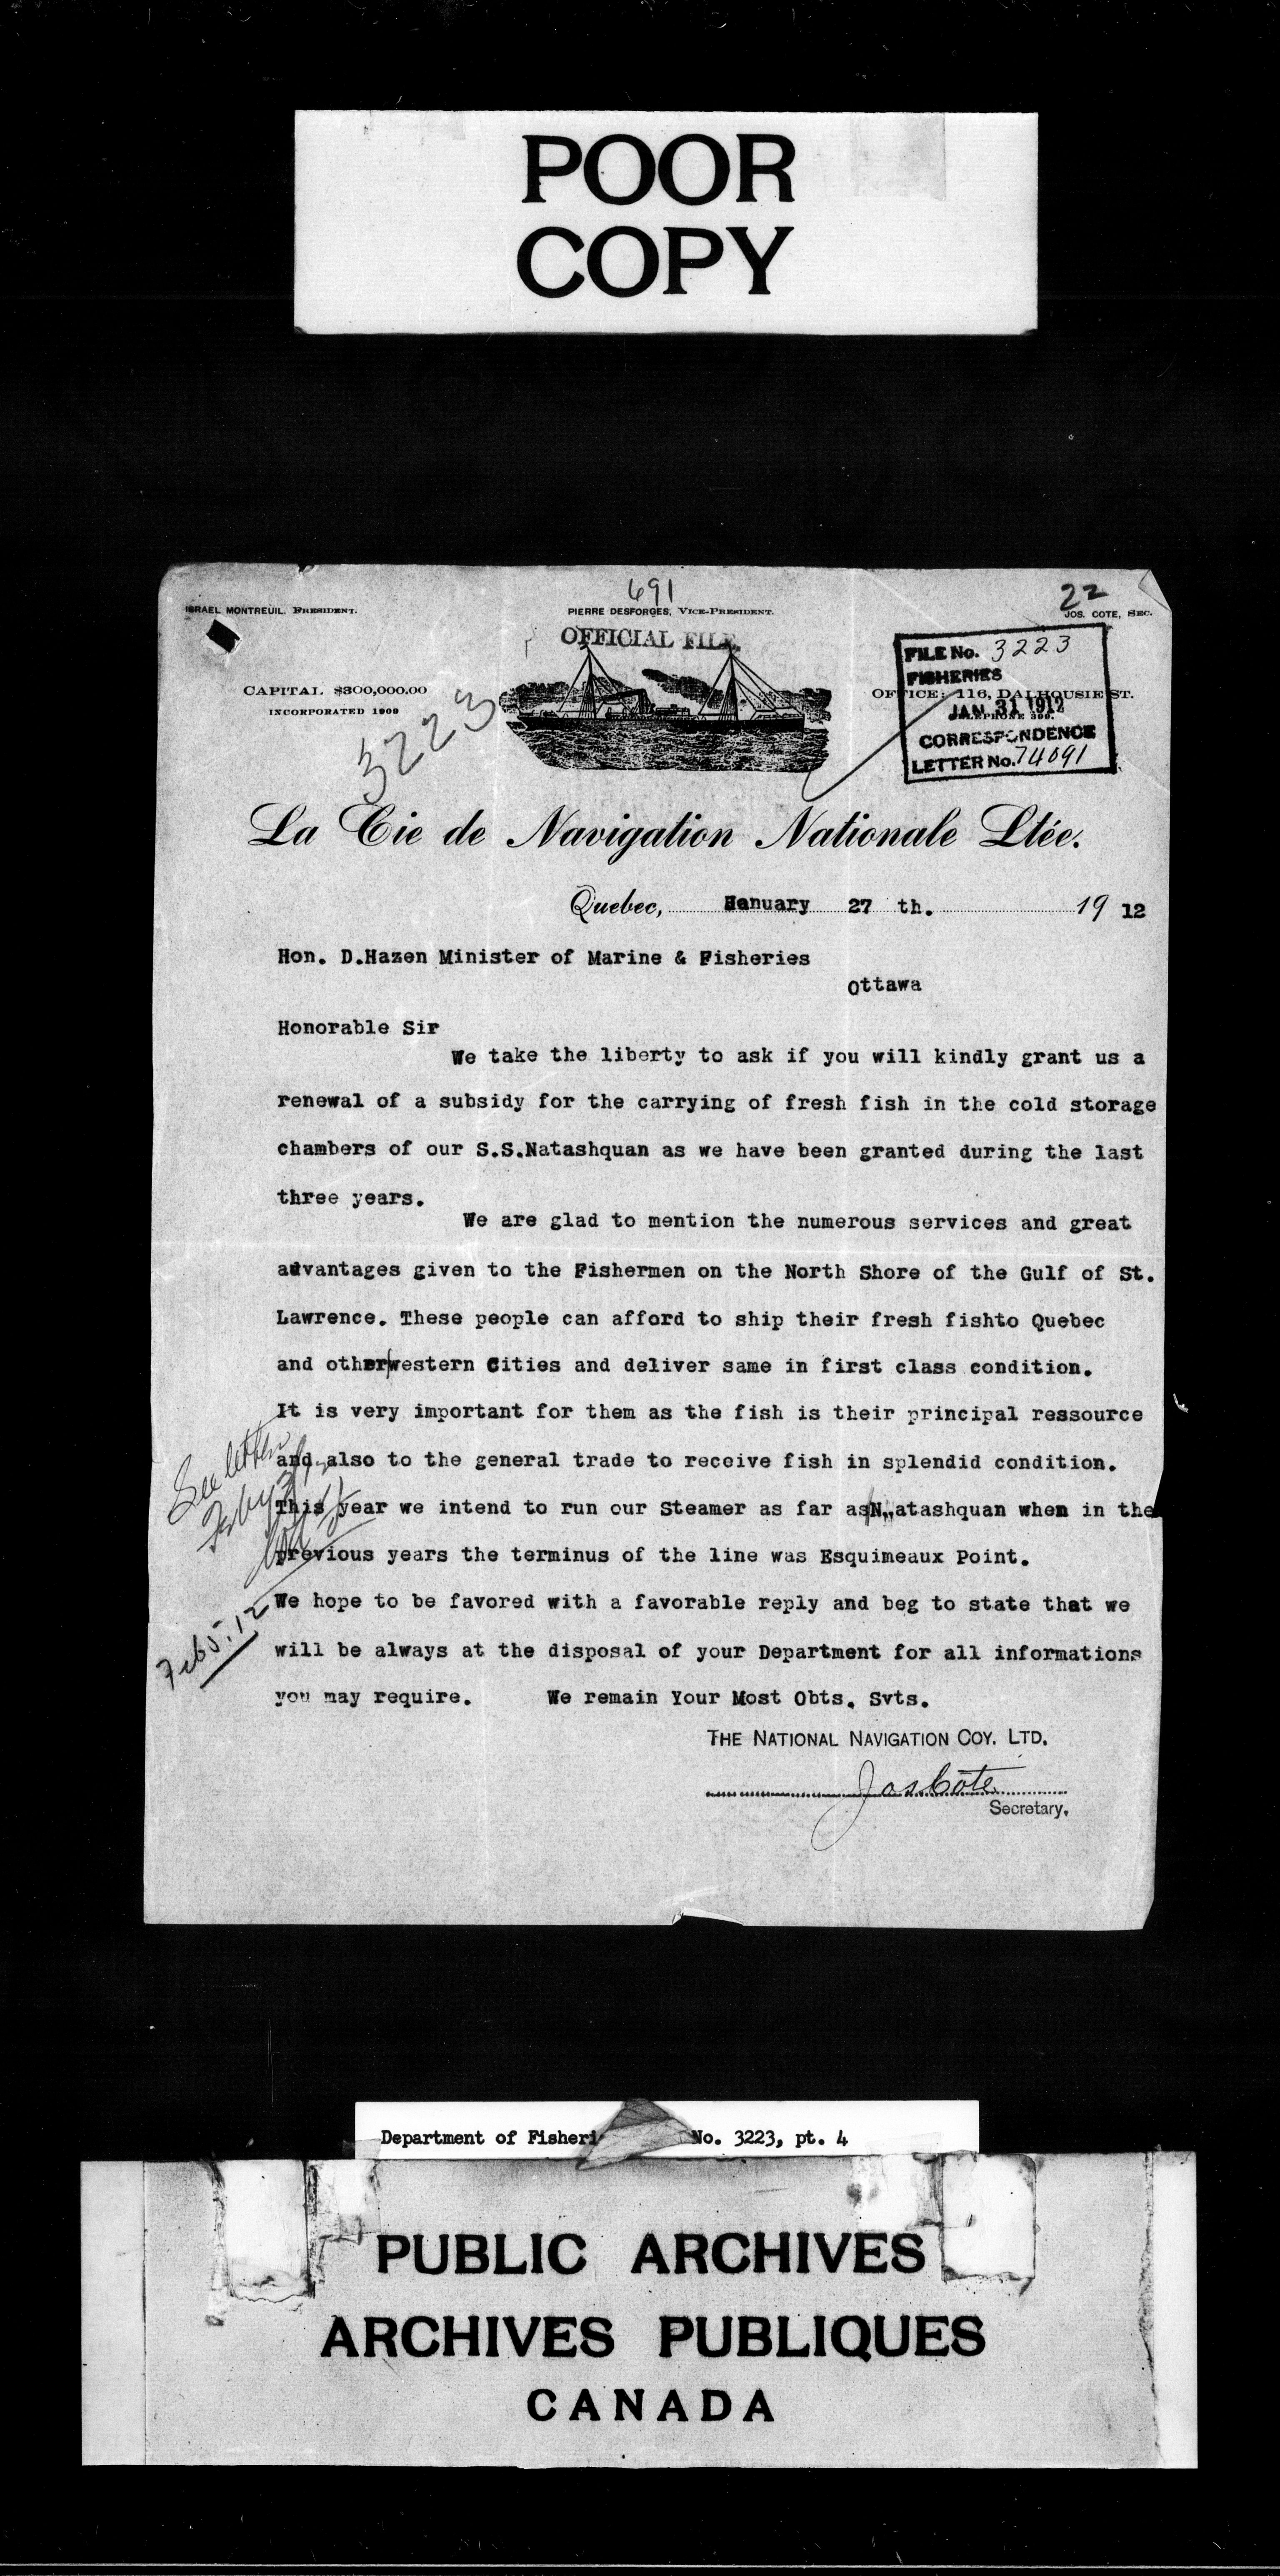 POOR
COPY
691
22
ISRAEL MONTREUIL, PRESIDENT.
PIERRE DESFORGES, VICE-PRESIDENT.
JOS. COTE, SEC.
OFFICIAL FILE.
FILE No. 3223
FISHERIES
CAPITAL $300,000.00
OFFICE: 116, DALHOUSIE ST.
INCORPORATED 1909
JAN 31 1912
TELEPHONE 399.
3223
CORRESPONDENCE
LETTER No. 74091
La Cie de Navigation Nationale Ltée.
Quebec, January 27 th. 19 12
Hon. D.Hazen Minister of Marine & Fisheries
Ottawa
Honorable Sir
We take the liberty to ask if you will kindly grant us a
renewal of a subsidy for the carrying of fresh fish in the cold storage
chambers of our S.S.Natashquan as we have been granted during the last
three years.
We are glad to mention the numerous services and great
advantages given to the Fishermen on the North Shore of the Gulf of St.
Lawrence. These people can afford to ship their fresh fishto Quebec
and other/western Cities and deliver same in first class condition.
It is very important for them as the fish is their principal ressource
and also to the general trade to receive fish in splendid condition.
This year we intend to run our Steamer as far as/N,,atashquan when in the
previous years the terminus of the line was Esquimeaux Point.
We hope to be favored with a favorable reply and beg to state that we
will be always at the disposal of your Department for all informations
you may require. We remain Your Most Obts. Svts.
See letter
Feb 5. 12
THE NATIONAL NAVIGATION COY. LTD.
Jos Côté
Secretary.
Department of Fisheri No. 3223, pt. 4
PUBLIC ARCHIVES
ARCHIVES PUBLIQUES
CANADA